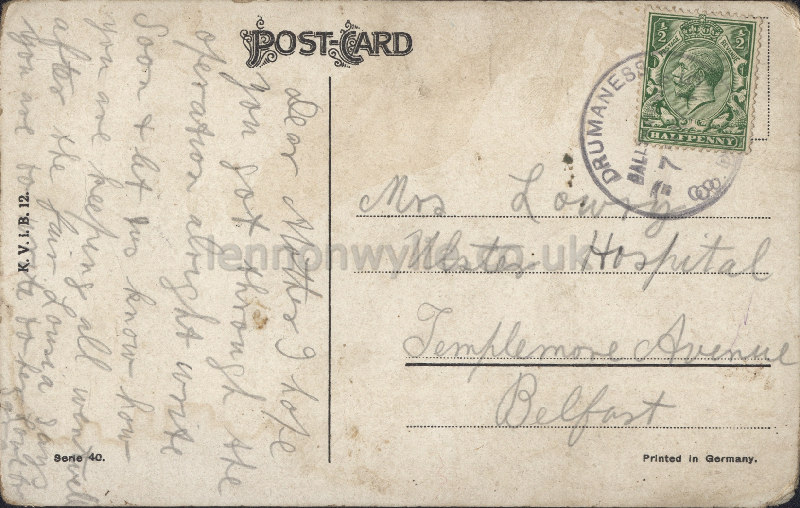 POST-CARD
Dear Mother I hope
you got through the
operation alright write
Soon & let us know how
you are keeping all went well
after the fair Louisa says
you are to write to her
K. V. i. B. 12.
Serie 40.
½ ½
HALFPENNY
DRUMANESS
BALL
7
Mrs Lowry
Ulster Hospital
Templemore Avenue
Belfast
Printed in Germany.
lennonwylie.co.uk